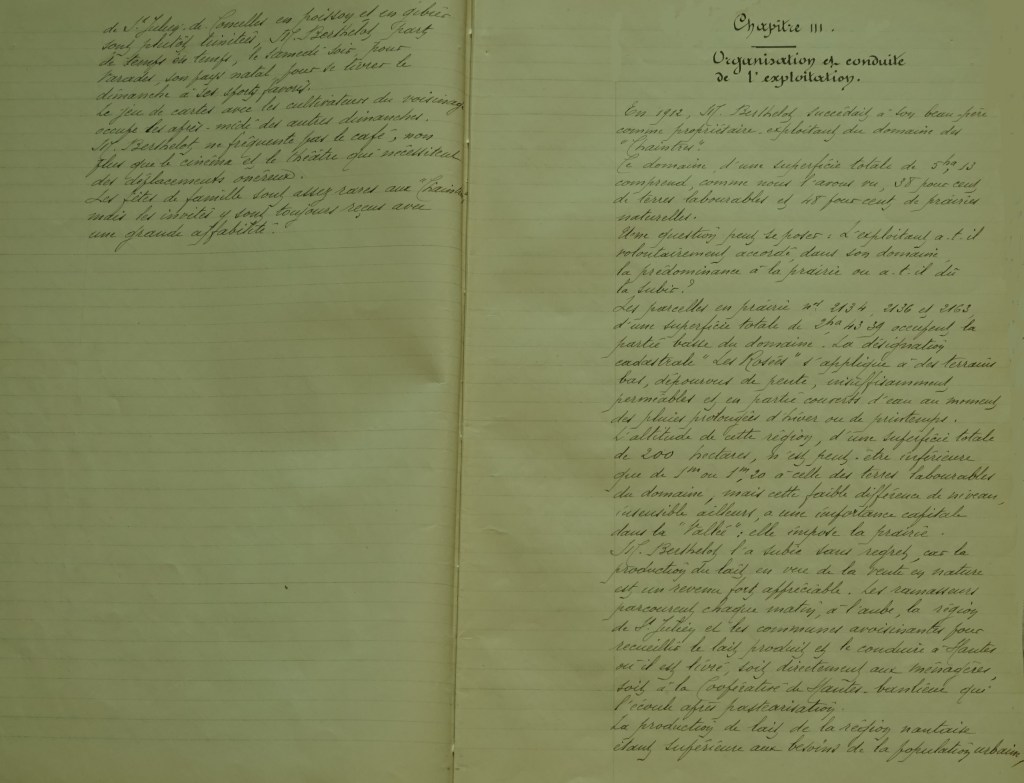 de St Julien-de-Concelles en poisson et en gibier
sont plutôt limitées, M. Berthelot part
de temps en temps, le samedi soir pour
Varades, son pays natal pour se livrer le
dimanche à ses sports favoris.
Le jeu de cartes avec les cultivateurs du voisinage
occupe les après-midi des autres dimanches.
M. Berthelot ne fréquente pas le café, non
plus que le cinéma et le théâtre qui nécessitent
des déplacements onéreux.
Les fêtes de famille sont assez rares aux "Chaintres"
mais les invités y sont toujours reçus avec
une grande affabilité.
Chapitre III.
Organisation et conduite
de l'exploitation.
En 1912, M. Berthelot succédait à son beau-père
comme propriétaire-exploitant du domaine des
"Chaintres".
Ce domaine, d'une superficie totale de 5ha,13
comprend, comme nous l'avons vu, 38 pour cent
de terres labourables et 48 pour cent de prairies
naturelles.
Une question peut se poser : L'exploitant a-t-il
volontairement accordé, dans son domaine,
la prédominance à la prairie ou a-t-il dû
la subir ?
Les parcelles en prairie nos 2134, 2136 et 2163,
d'une superficie totale de 2ha 43 39 occupent la
partie basse du domaine. La désignation
cadastrale "Les Rosées" s'applique à des terrains
bas, dépourvus de pente, insuffisamment
perméables et en partie couverts d'eau au moment
des pluies prolongées d'hiver ou de printemps.
L'altitude de cette région, d'une superficie totale
de 200 hectares, n'est peut-être inférieure
que de 1m ou 1m,20 à celle des terres labourables
du domaine, mais cette faible différence de niveau,
insensible ailleurs, a une importance capitale
dans la "Vallée" ; elle impose la prairie.
M. Berthelot l'a subie sans regret, car la
production du lait en vue de la vente en nature
est un revenu fort appréciable. Les ramasseurs
parcourent chaque matin, à l'aube, la région
de St Julien et les communes avoisinantes pour
recueillir le lait produit et le conduire à Nantes
où il est livré, soit directement aux ménagères,
soit à la Coopérative de Nantes-banlieue qui
l'écoule après pasteurisation.
La production de lait de la région nantaise
étant supérieure aux besoins de la population urbaine,